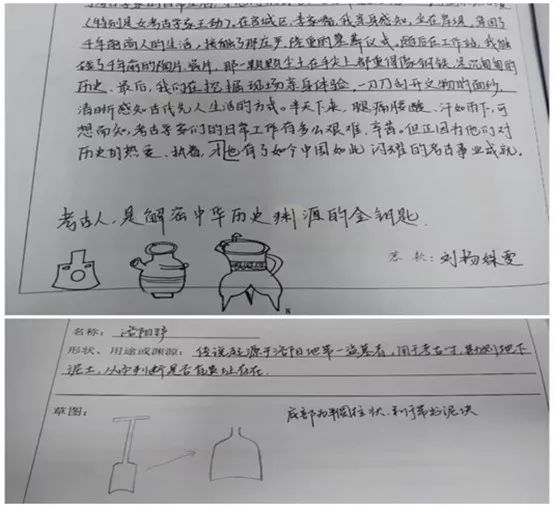 (特别是女考古学家王劲)。在宫城区、李家嘴,我亲身感知,坐在
千年前商人的生活,接触了那庄严、隆重的墓葬仪式。随后在工作站,我触
碰了千年前的陶片、瓷片,那一颗颗尘土在手尖上都重得像钢铁,
历史。最后,我们在挖掘现场亲身体验,一刀刀刮开文物的面纱,
清晰感知古代先人生活的方式。半天下来,腿痛腰酸、汗如雨下,可
想而知,考古学家们的日常工作有多么艰难、辛苦。但正因为他们对
历史的热爱、执着,才也有了如今中国如此闪耀的考古事业成就。
考古人,是解密中华历史渊源的金钥匙
落款:刘杨姝雯
8
名称:洛阳铲
形状、用途或渊源:传说起源于洛阳地带一盗墓者,用于考古时,勘测地下
泥土,从而判断是否有遗址存在.
草图:
底部为半圆柱状,利于带出泥块